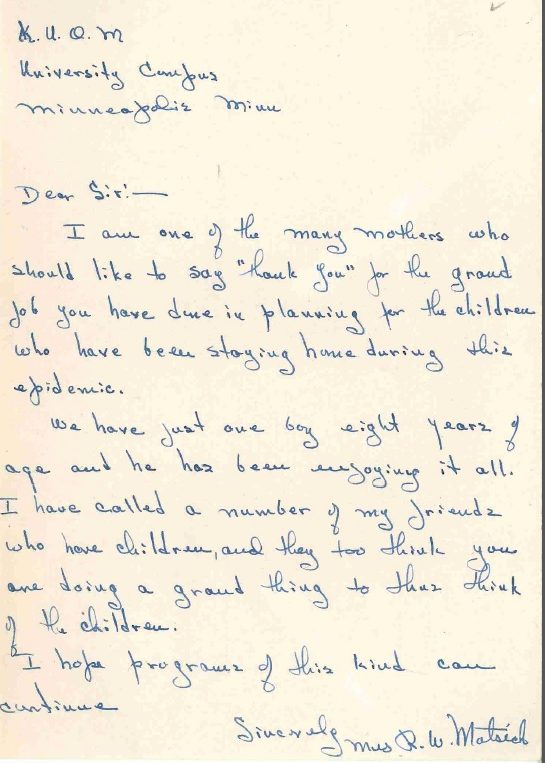 K.U.O.M
University Campus
Minneapolis Minn
Dear Sir:—
I am one of the many mothers who
should like to say "thank you" for the grand
job you have done in planning for the children
who have been staying home during this
epidemic.
We have just one boy eight years of
age and he has been enjoying it all.
I have called a number of my friends
who have children, and they too think you
are doing a grand thing to thus think
of the children.
I hope programs of this kind can
continue
Sincerely
Mrs R. W.